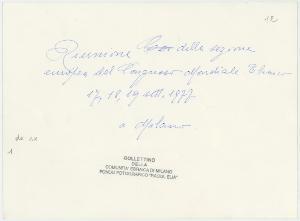 12
Riunione della sezione
europea del Congresso Mondiale Ebraico
17, 18, 19 ott. 1977
a Milano
1
BOLLETTINO
DELLA
COMUNITA' EBRAICA DI MILANO
FONDO FOTOGRAFICO "PAOUL ELIA"